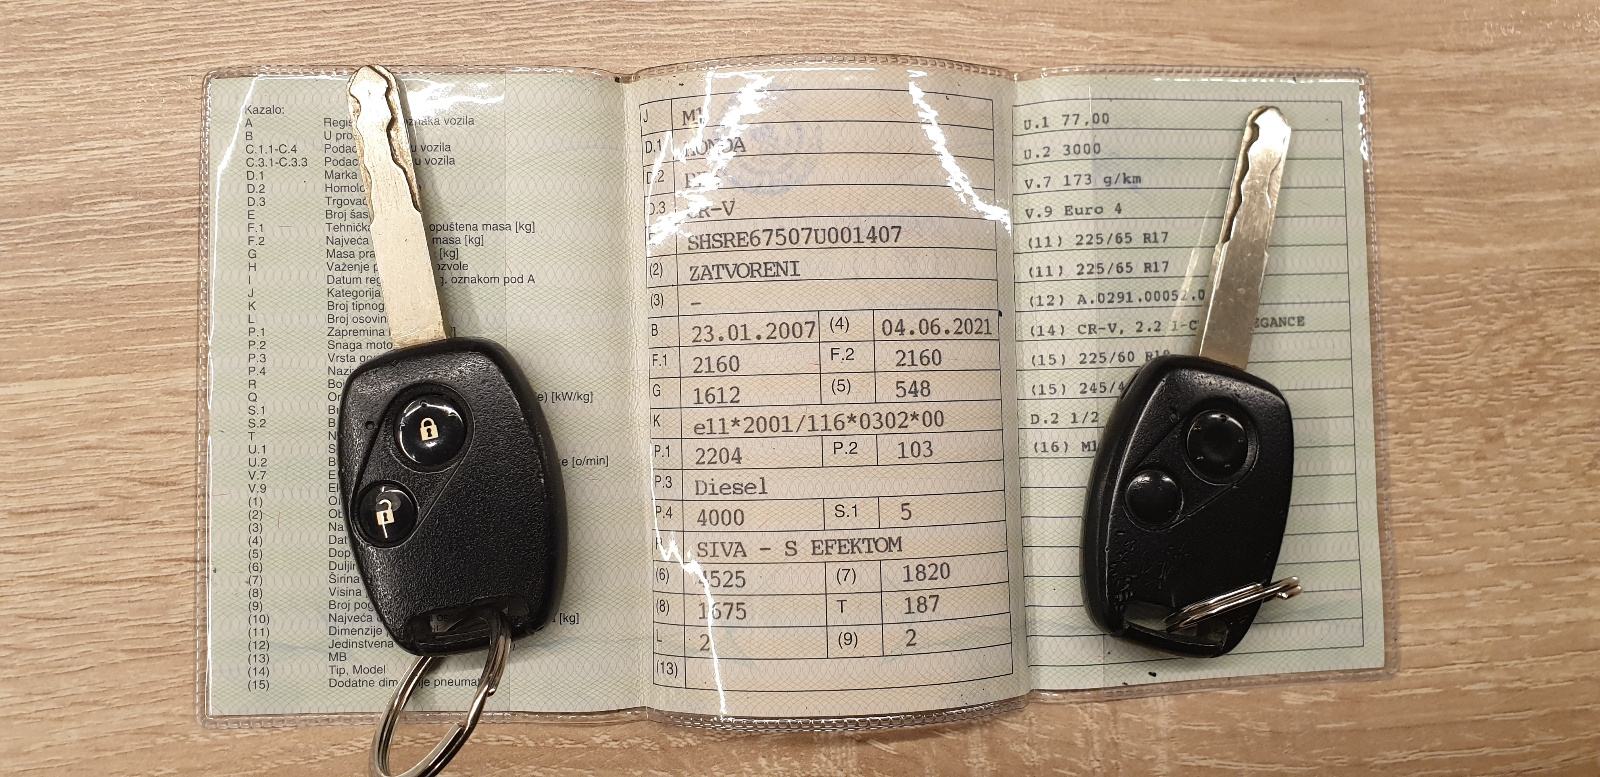 Kazalo:
A oznaka vozila
B U pro
C.1.1-C.4 Podac u vozila
C.3.1-C.3.3 Podac u vozila
D.1 Marka
D.2 Homolo
D.3 Trgova
E Broj šas
F.1 Tehnička opuštena masa [kg]
F.2 Najveća masa [kg]
G Masa pra [kg]
H Važenje p ozvole
I Datum reg g. oznakom pod A
J Kategorija
K Broj tipnog
L Broj osovin
P.1 Zapremina
P.2 Snaga moto
P.3 Vrsta go
P.4 Nazi
R Bo
Q e) [kW/kg]
S.1
S.2
T
U.1
U.2 e [o/min]
V.7
V.9
(1)
(2)
(3)
(4) Dat
(5) Dop
(6) Duljin
(7) Širina
(8) Visina
(9) Broj pog
(10) Najveća [kg]
(11) Dimenzije
(12) Jedinstvena
(13) MB
(14) Tip, Model
(15) Dodatne dim je pneumat
J M1
D.1 HONDA
D.2
D.3 CR-V
SHSRE67507U001407
(2) ZATVORENI
(3) –
B 23.01.2007 (4) 04.06.2021
F.1 2160 F.2 2160
G 1612 (5) 548
K e11*2001/116*0302*00
P.1 2204 P.2 103
P.3 Diesel
P.4 4000 S.1 5
R SIVA - S EFEKTOM
(6) 4525 (7) 1820
(8) 1675 T 187
L 2 (9) 2
(13)
U.1 77,00
U.2 3000
V.7 173 g/km
V.9 Euro 4
(11) 225/65 R17
(11) 225/65 R17
(12) A.0291.00052.0
(14) CR-V, 2.2 I-C EGANCE
(15) 225/60 R18
(15) 245/4
D.2 1/2
(16) M1